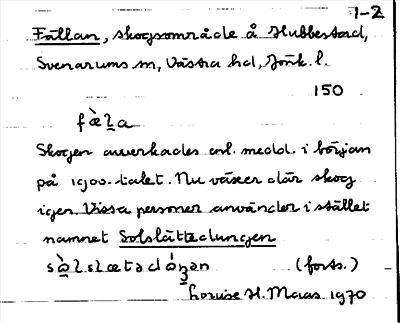 1-2
Fällan, skogsområde å Hubbestad,
Svenarums sn, Västra hd, Jönk. l.
150
fæ̀l̠a
Skogen avverkades enl. medd. i början
på 1900-talet. Nu växer där skog
igen. Vissa personer använder i stället
namnet Solslättedungen
(forts.)
Louise H. Maas 1970